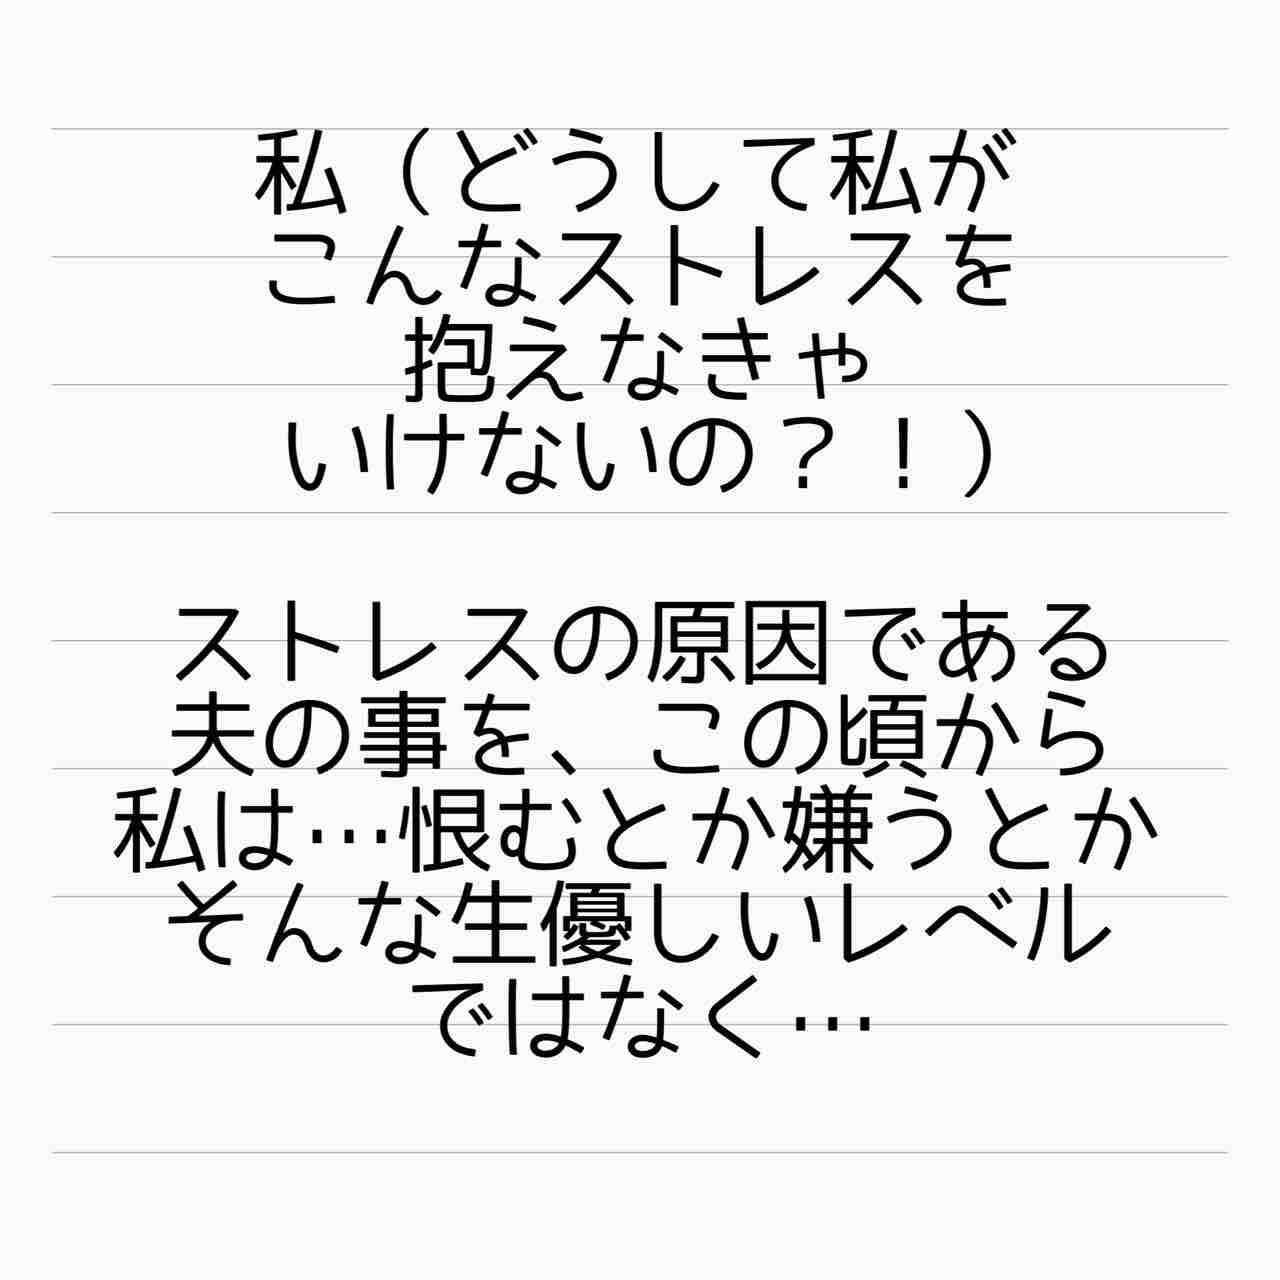 私（どうして私が
こんなストレスを
抱えなきゃ
いけないの？！）
ストレスの原因である
夫の事を、この頃から
私は…恨むとか嫌うとか
そんな生優しいレベル
ではなく…